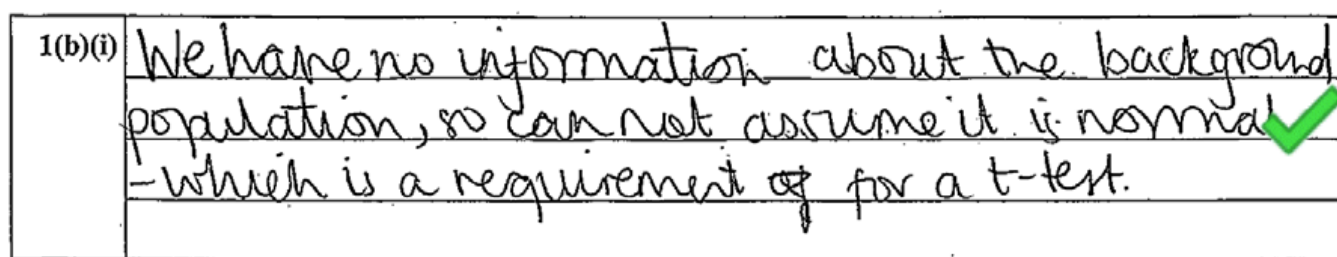 1(b)(i) We have no information about the background
population, so can not assume it is normal
- which is a requirement of for a t-test.